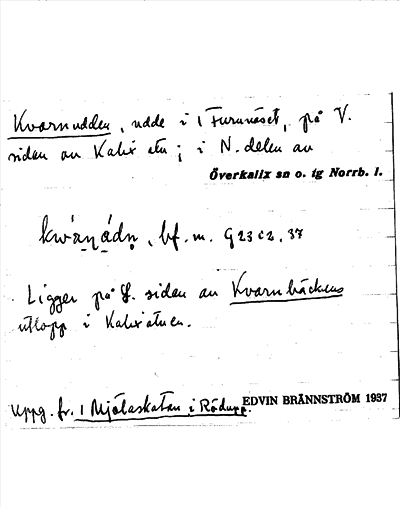 Kvarnudden, udde i 1 Furunäset, på V.
sidan av Kalix älv; i N. delen av
Överkalix sn o. tg Norrb. l.
bf. m. G 23 c 2, 37
Ligger på S. sidan av Kvarnbäckens
utlopp i Kalixälven.
Uppg. fr. 1 Mjölaskatan i Rödupp.
EDVIN BRÄNNSTRÖM 1937